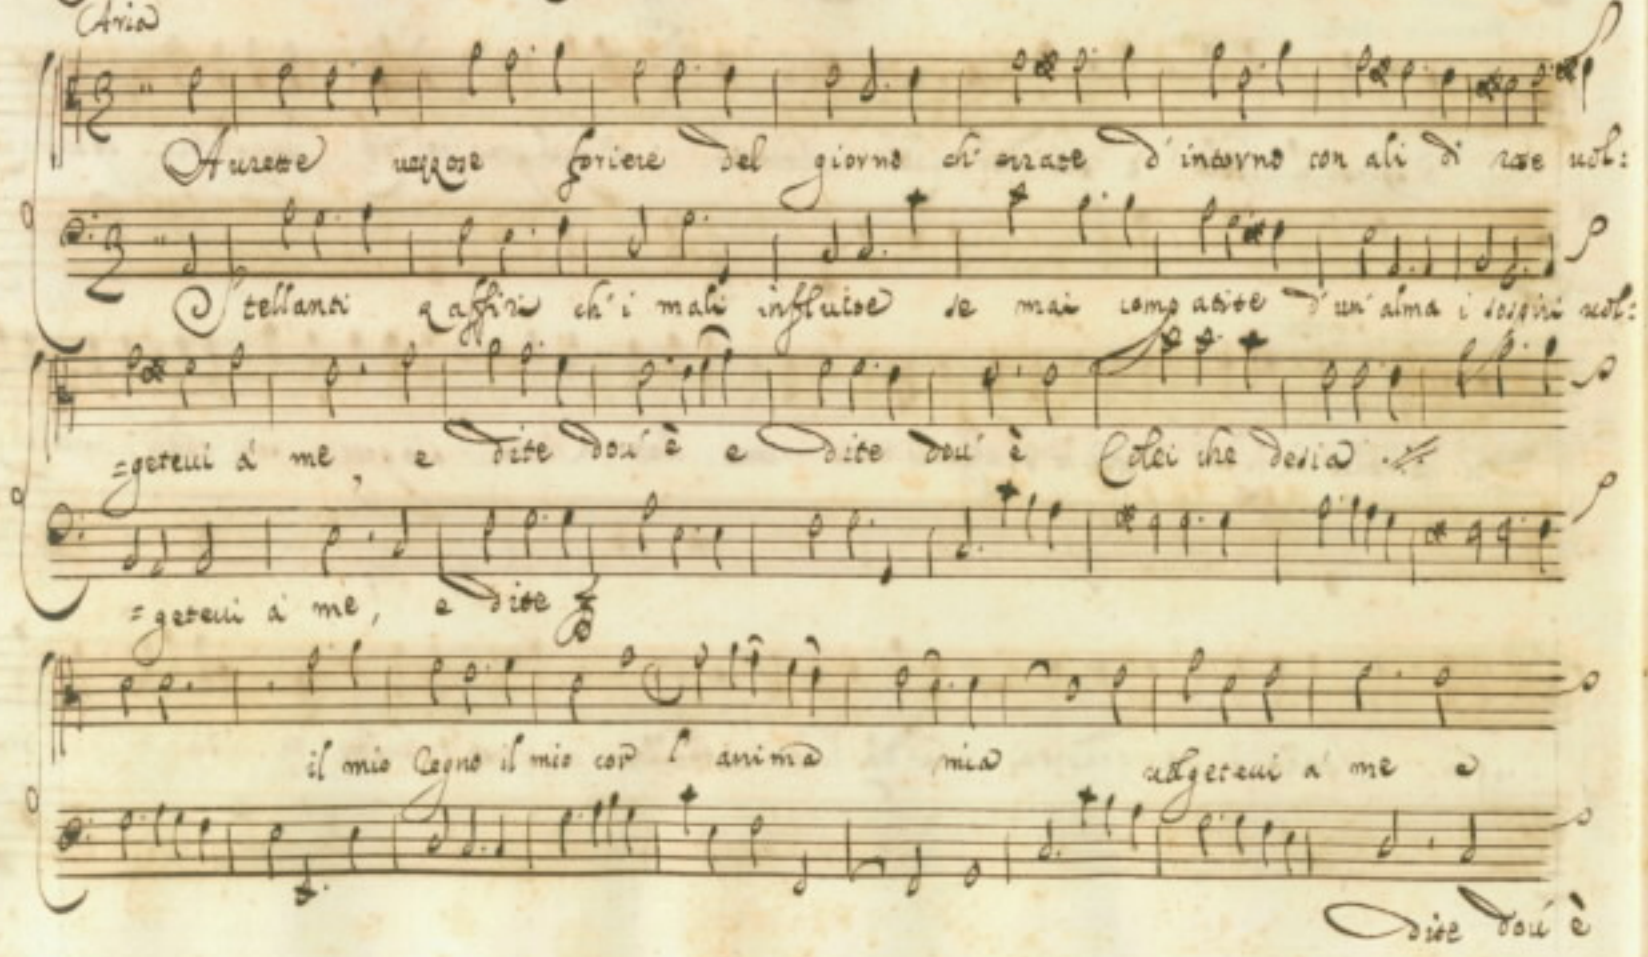 Aria
Aurette uezzose foriere del giorno ch' errate d'intorno con ali di rose uol:
Stellanti zaffiri ch'i mali influite se mai compatite d'un'alma i sospiri uol:
=geteui a' me e dite dou'è e dite dou' è Colei che desia
=geteui a' me, e dite
il mio Regno il mio cor l'anima mia uolgeteui a' me e
dite dou' è